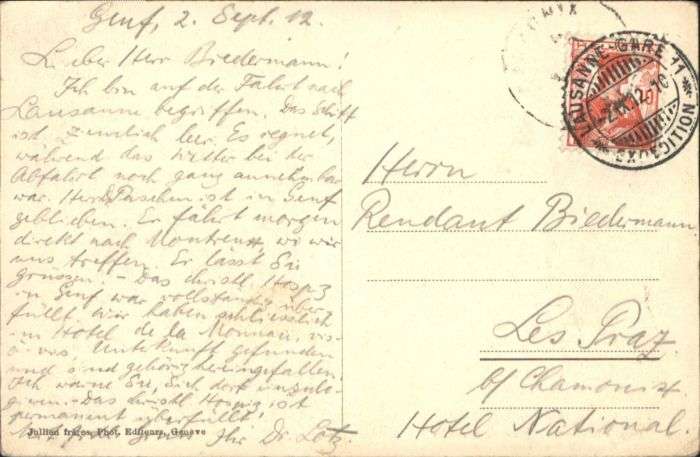 Genf, 2. Sept. 12.
Lieber Herr Biedermann!
Ich bin auf der Fahrt nach
Lausanne begriffen. Das Schiff
ist ziemlich leer. Es regnet,
während das Wetter bei der
Abfahrt noch ganz annehmbar
war. Herr Paschen ist in Genf
geblieben. Er fährt morgen
direkt nach Montreux, wo wir
uns treffen. Er lässt Sie
grüssen. - Das christl. Hospiz
in Genf war vollständig über
füllt. Wir haben schliesslich
im Hotel de la Monnaie, vis-
à-vis, Unterkunft gefunden
und sind gehörig hereingefallen.
Ich warne Sie, Sich dort einzulo-
gieren. - Das christl. Hospiz ist
permanent überfüllt!
Mit Ihr Dr. Lotz.
Jullien frères, Phot. Editeurs, Genève
LAUSANNE-GARE 11
EXSAGILLION
2.IX.12.-10
Herrn
Rendant Biedermann
Les Praz
b/ Chamonix.
Hotel National.